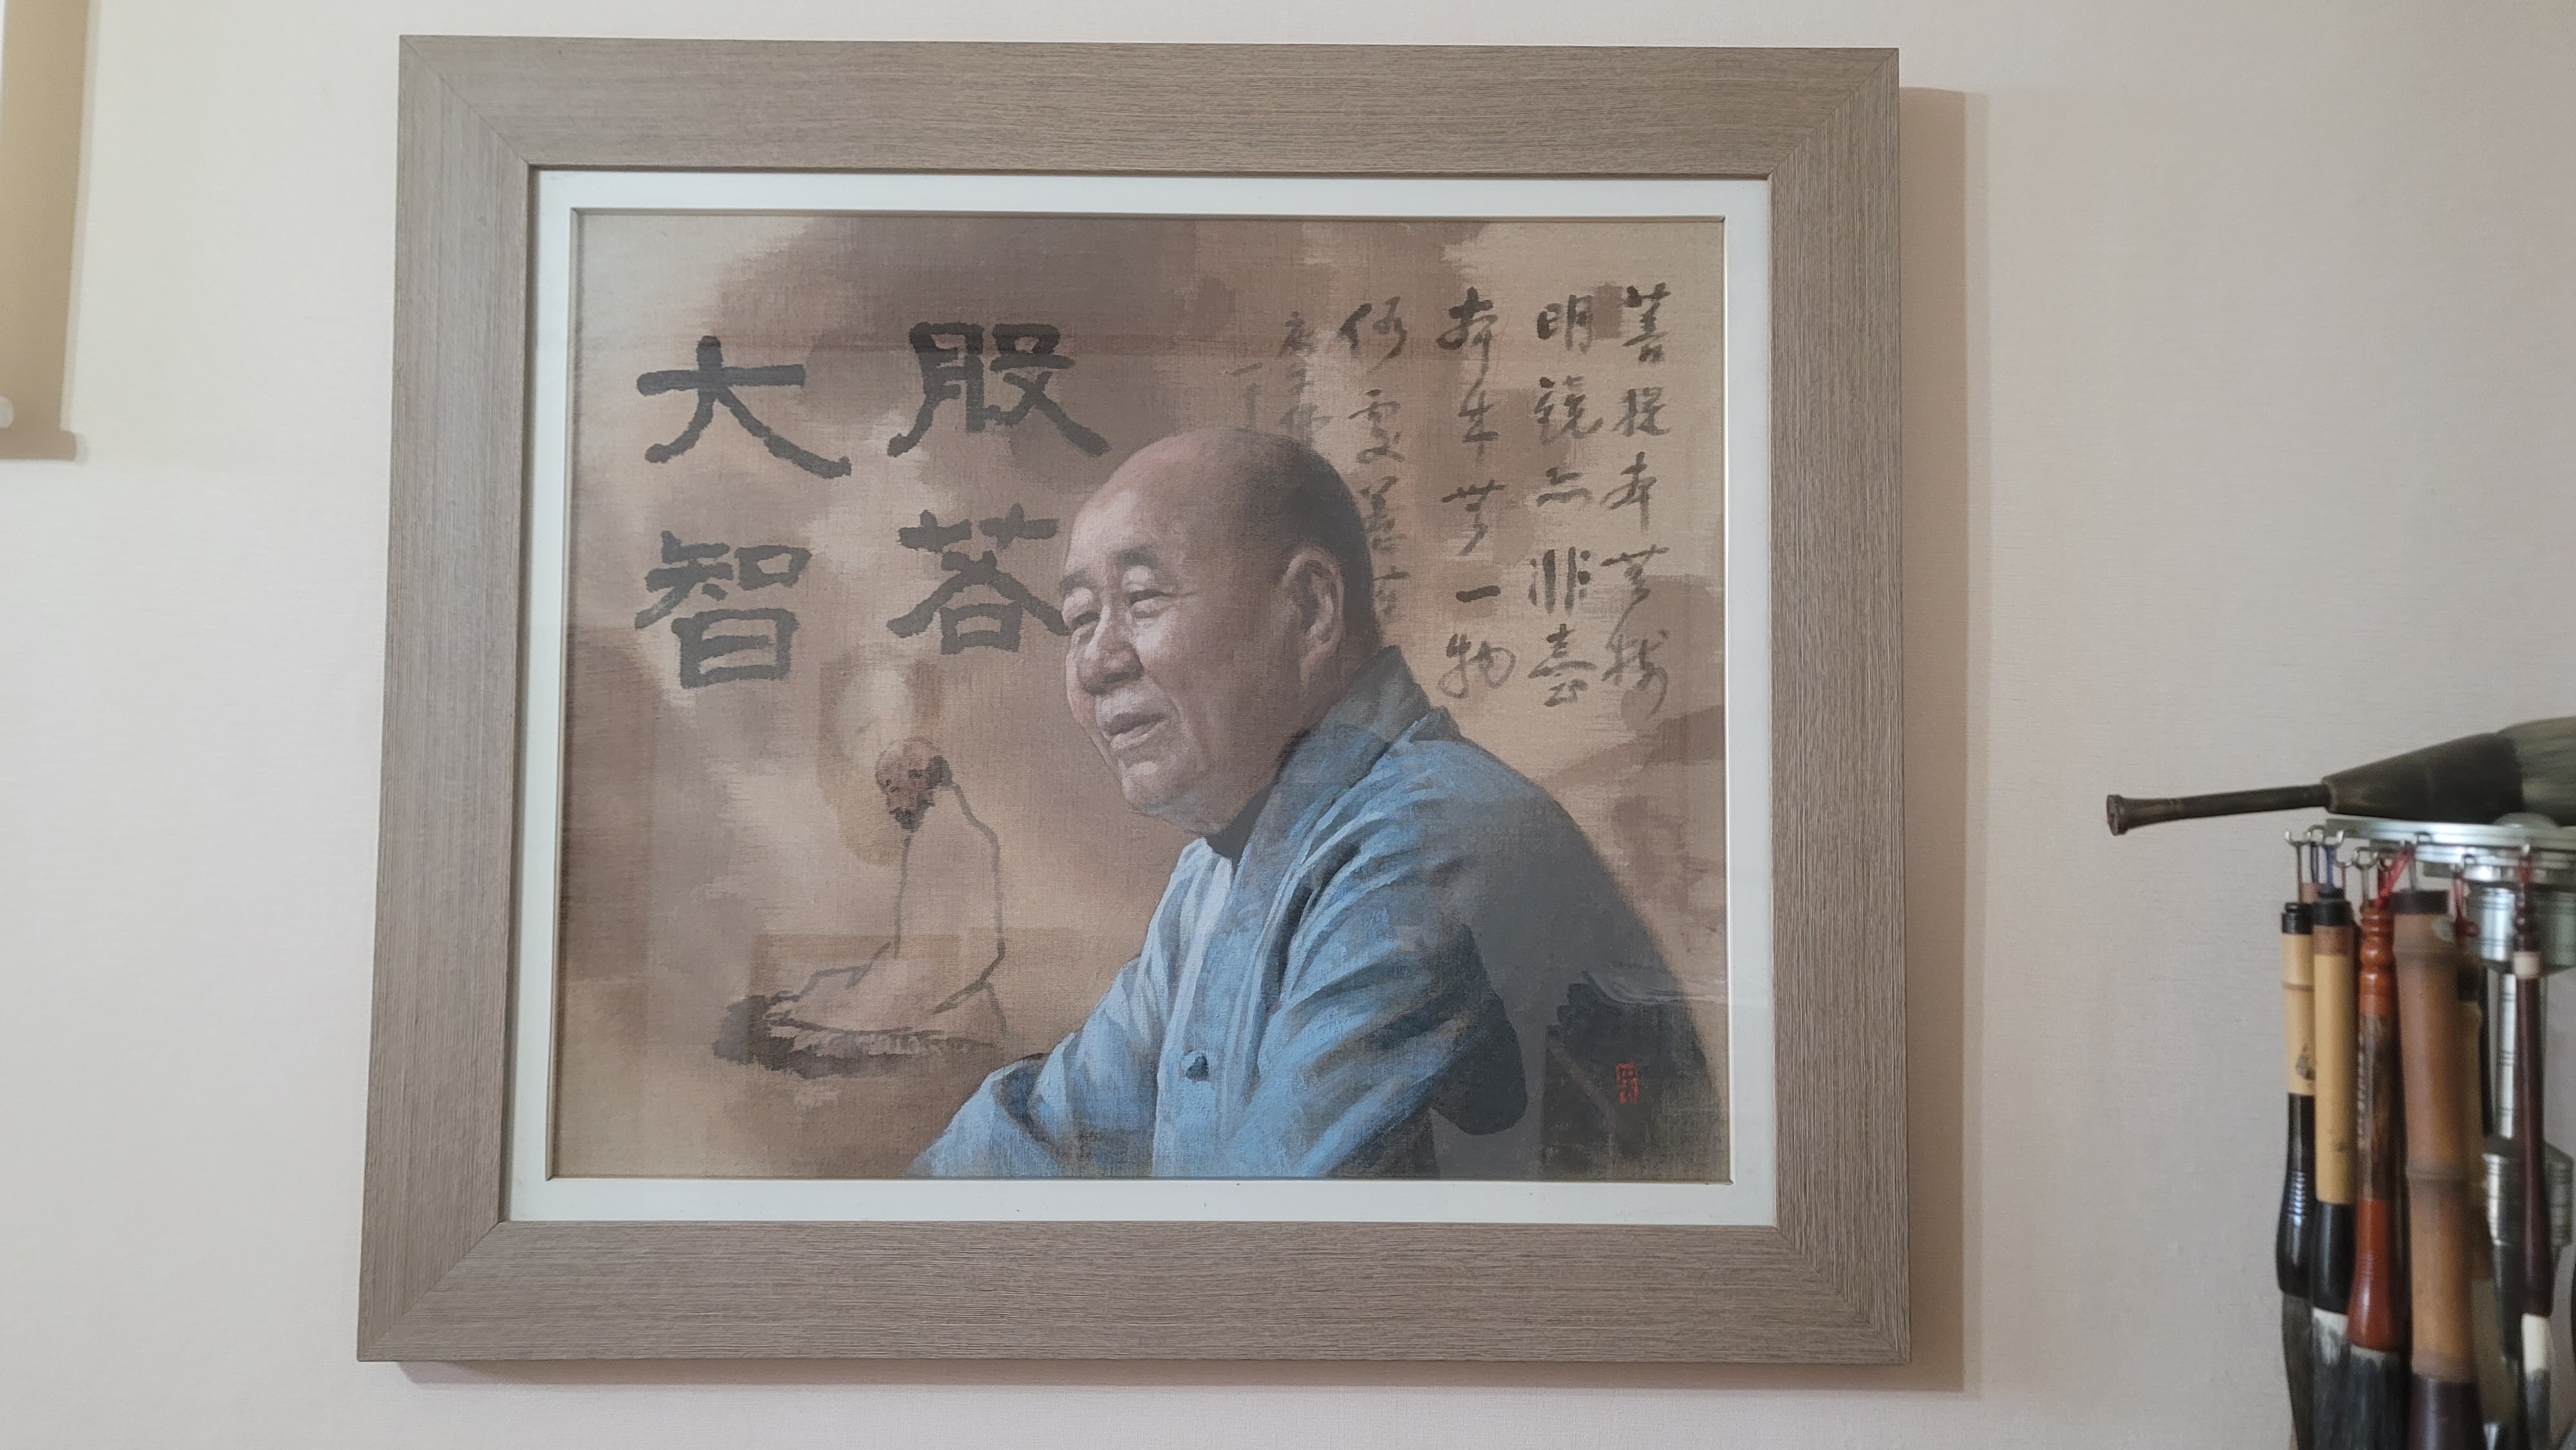 菩提本無樹
明鏡亦非臺
本来無一物
何處惹
般若
大智